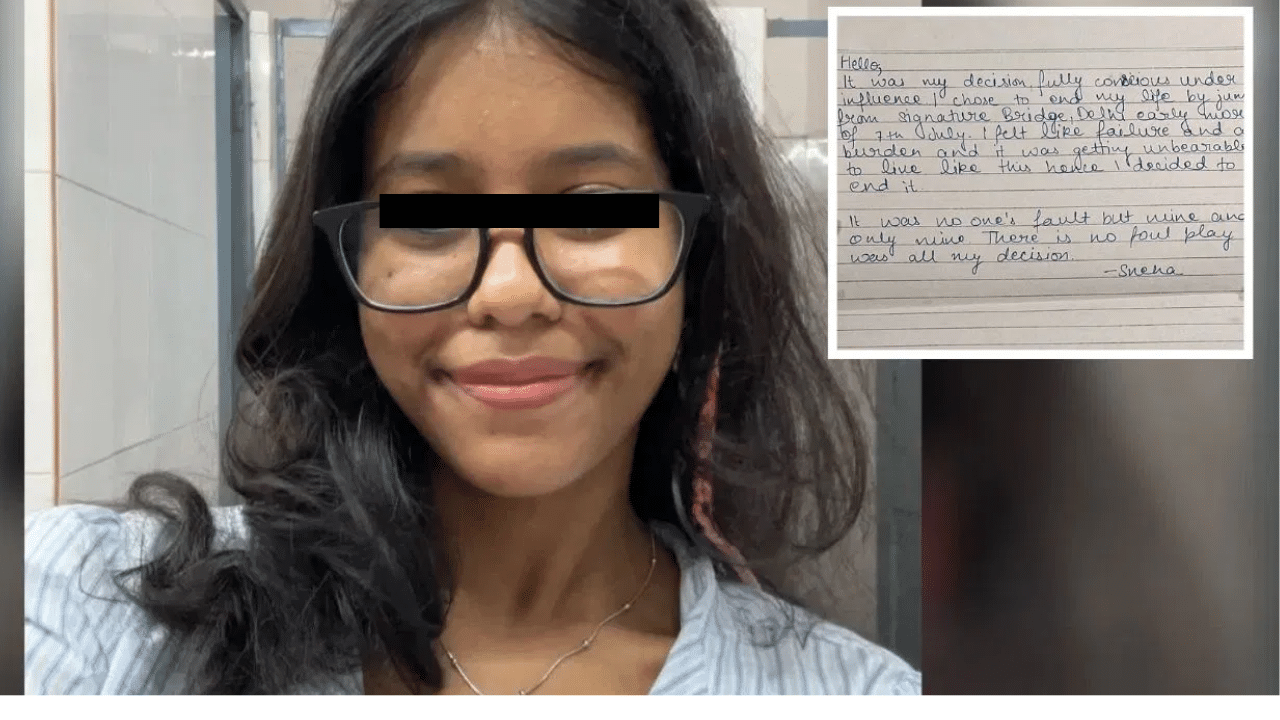 Hello,
It was my decision fully conscious under
influence I chose to end my life by jum
from Signature Bridge, Delhi early mor
of 7th July. I felt like failure and a
burden and it was getting unbearable
to live like this hence I decided to
end it.
It was no one's fault but mine and
only mine There is no foul play
was all my decision.
-Sneha